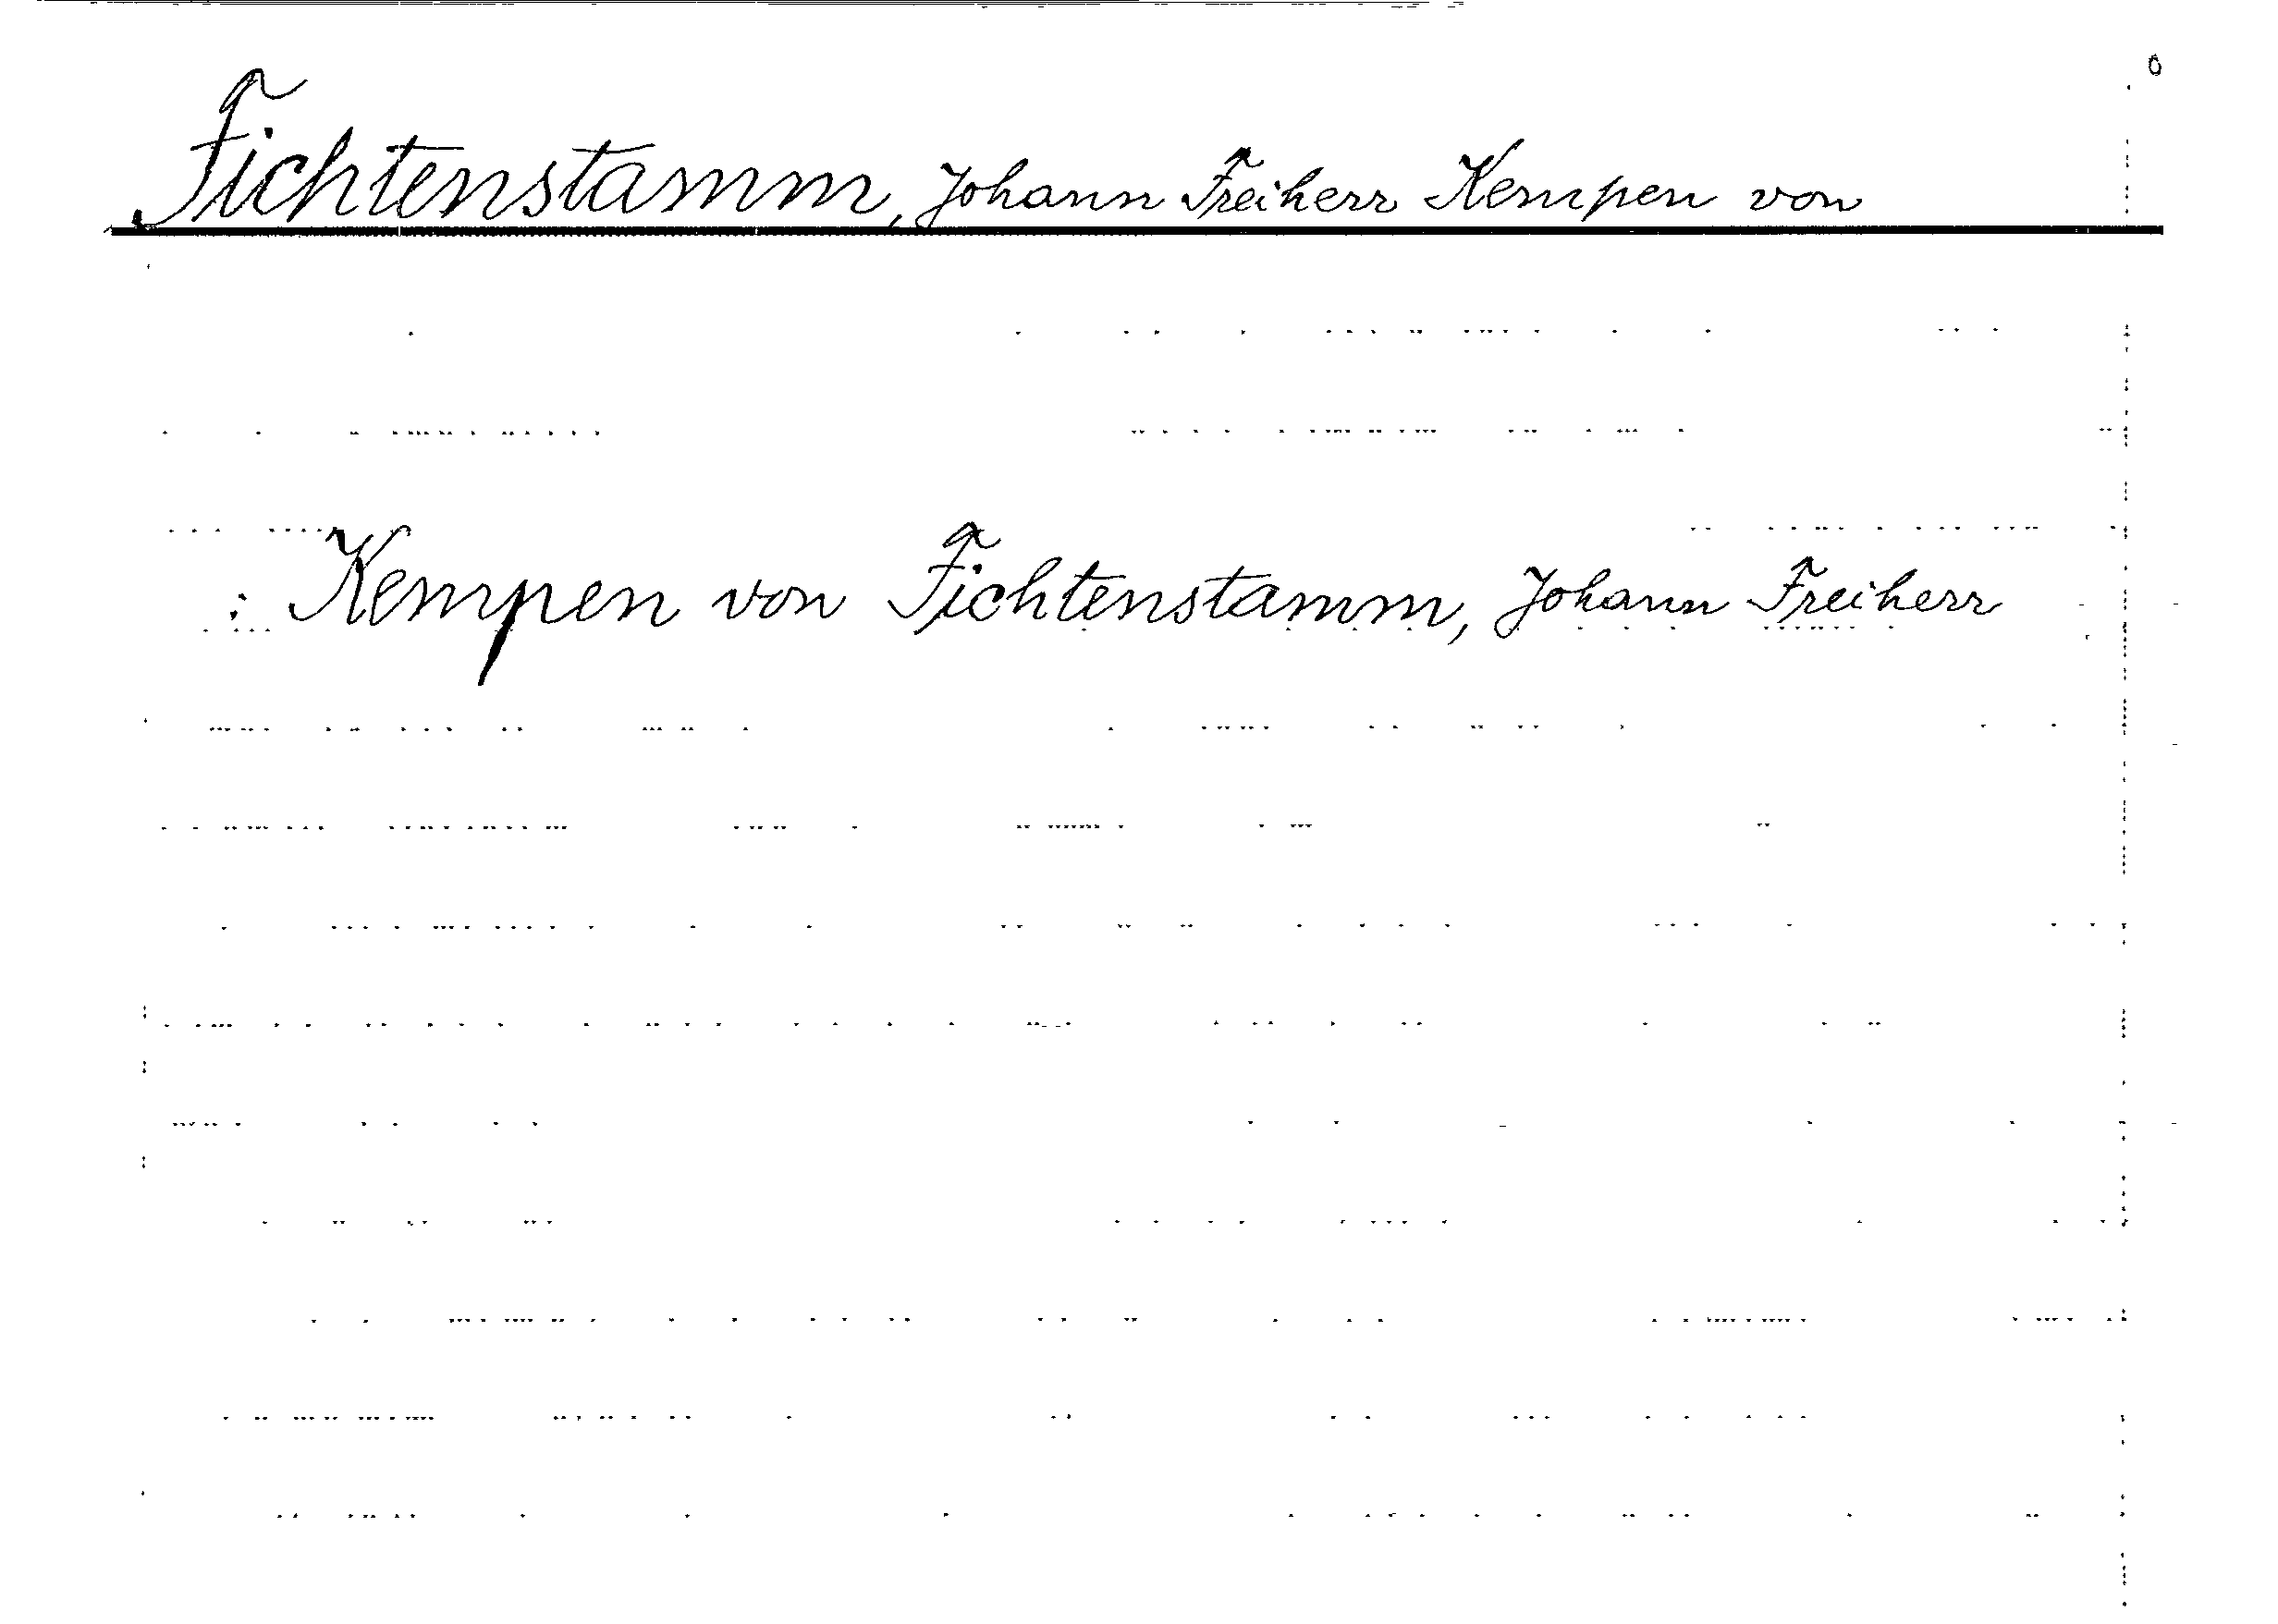 Fichtenstamm, Johann Freiherr Kempen von
: Kempen von Fichtenstamm, Johann Freiherr